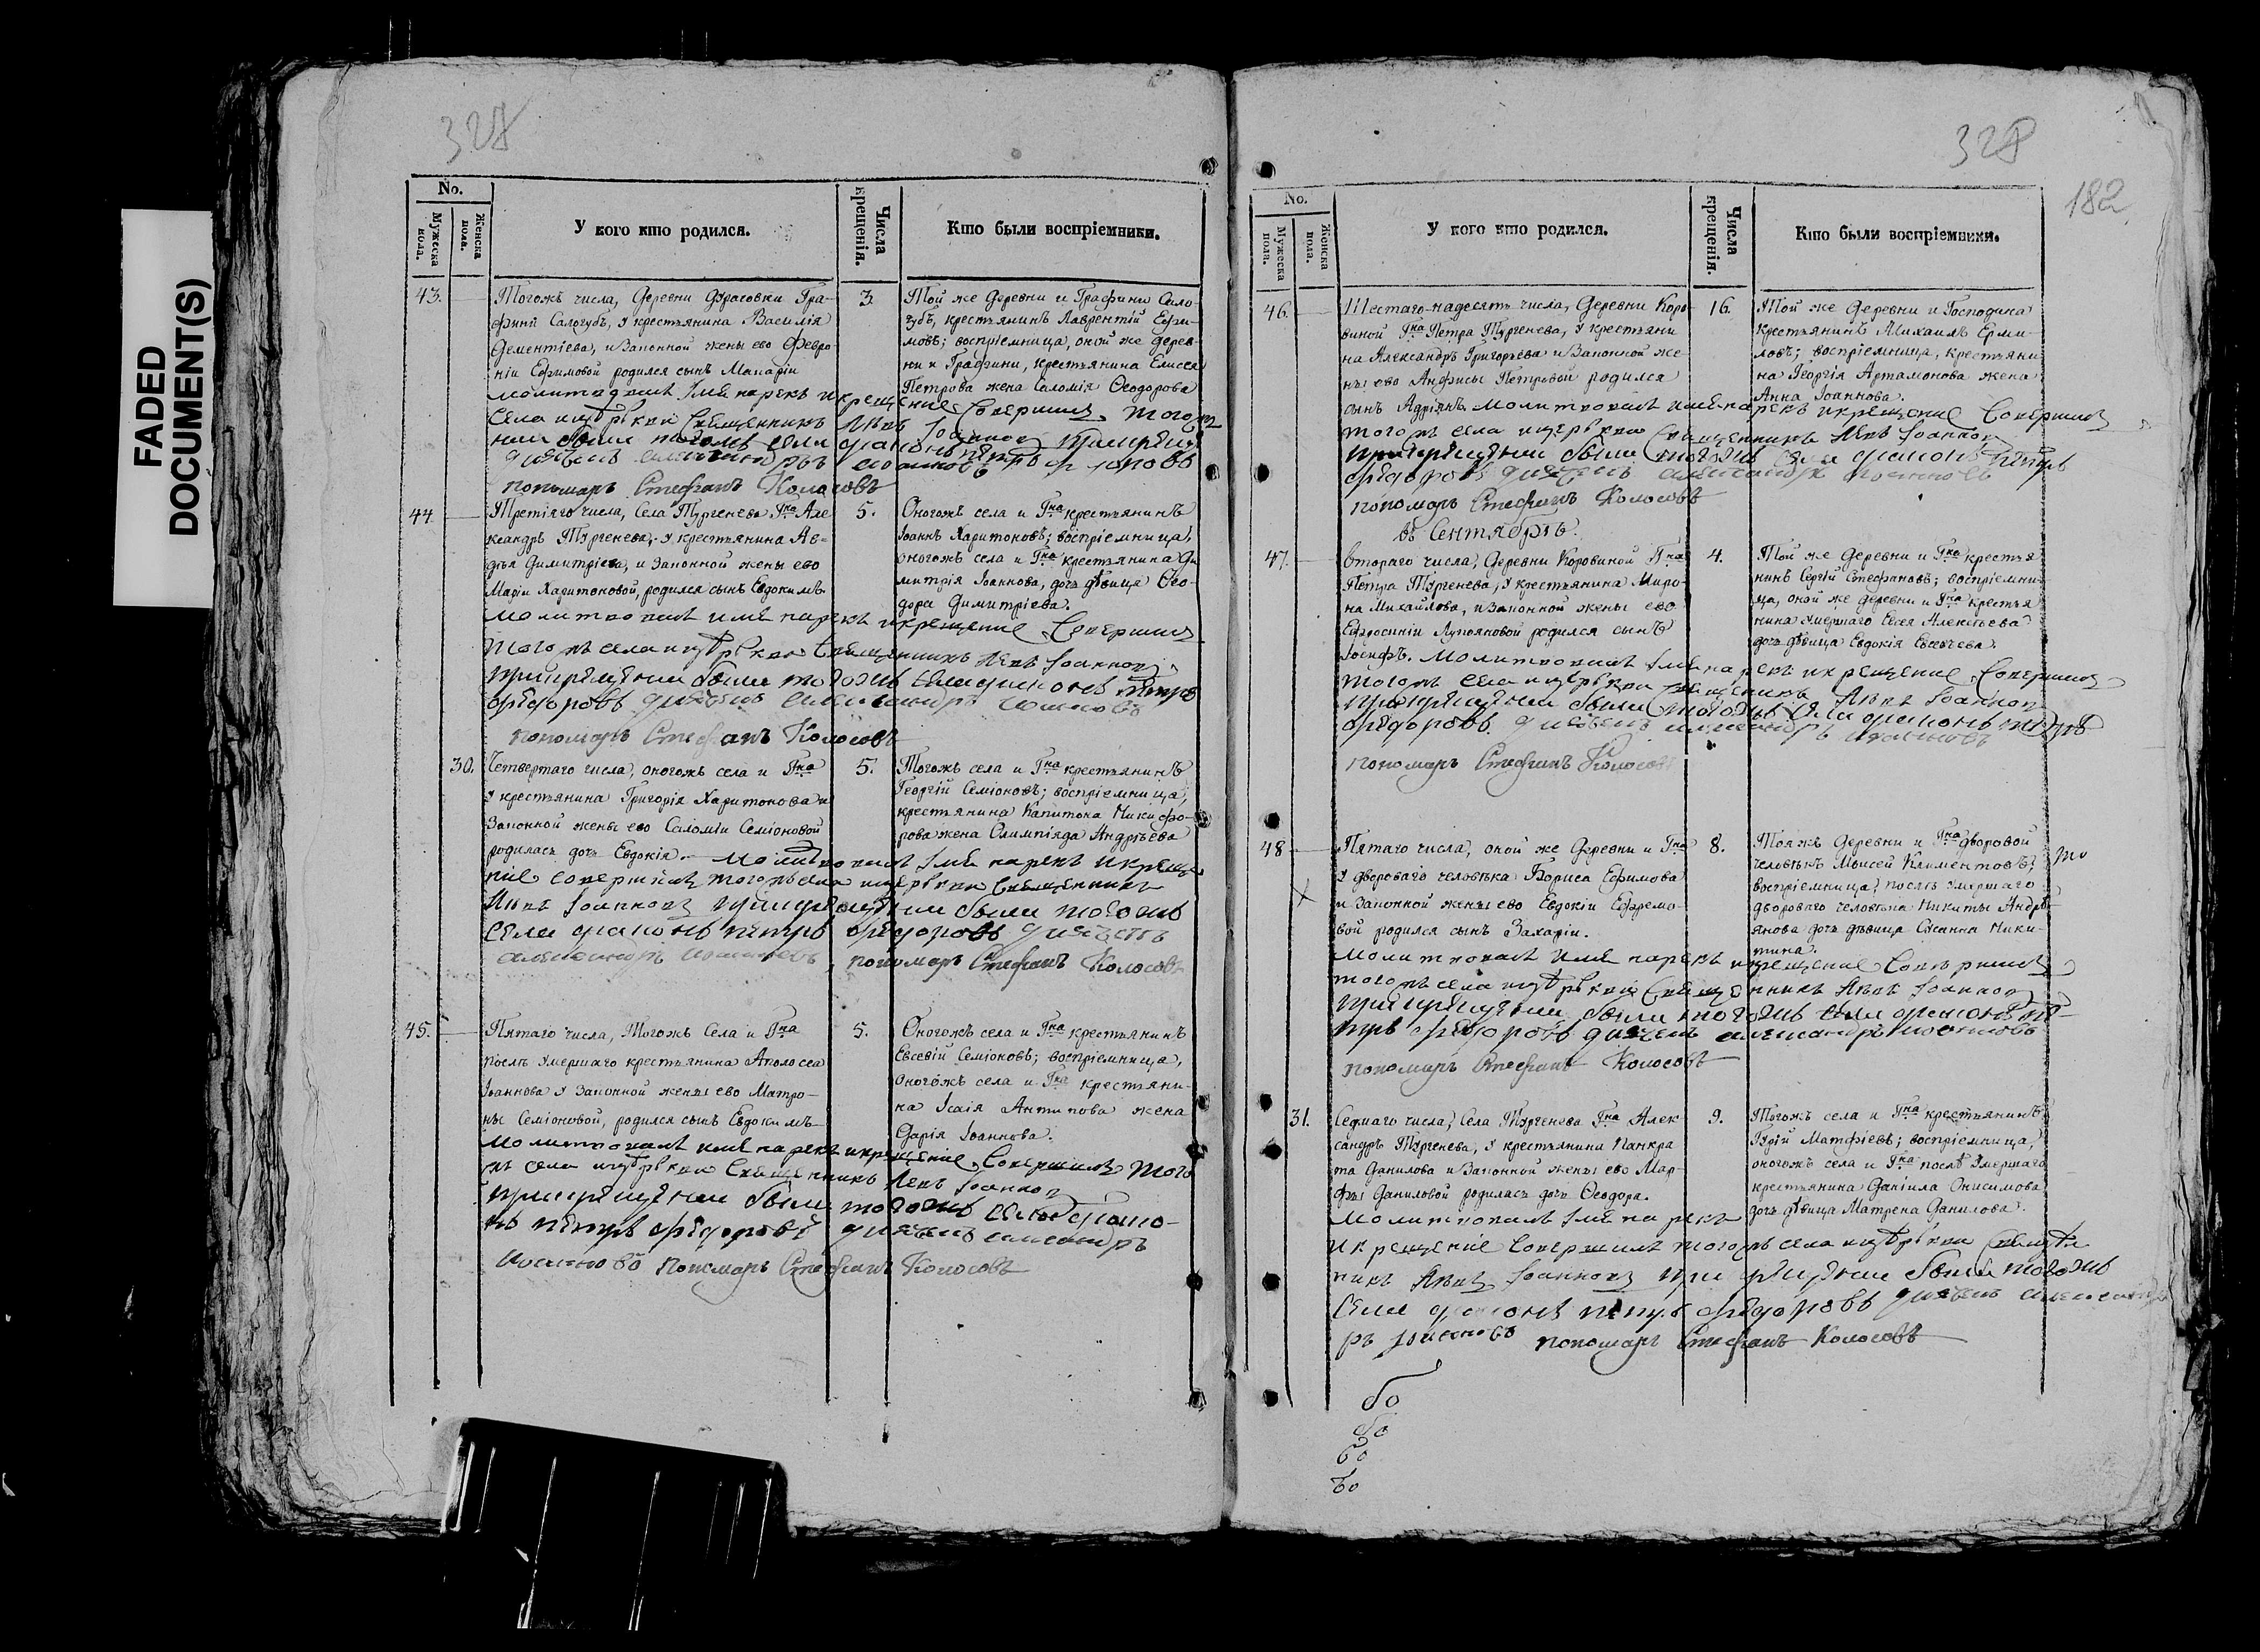 FADED
DOCUMENT(S)
328
No.
Мужеска пола.
Женска пола.
У кого кто родился.
Числа крещенія.
Кто были воспріемники.
43.
Тогожъ числа, Деревни Дурасовки Гра-
фини Салогубъ, у крестьянина Василія
Дементіева, и Законной жены ево Февро
ніи Ефимовой родился сынъ Макарій
молитвовалъ имя нарекъ и крещеніе совершилъ тогожъ
села церкви священникъ Левъ Іоанновъ
пономарь Стефанъ Колосовъ
3.
Той же Деревни и Графини Сало-
губъ, крестьянинъ Лаврентій Ефи-
мовъ; воспріемница, оной же дерев-
ни и Графини, крестьянина Елисея
Петрова жена Саломія Ѳеодорова
44
Третіяго числа, Села Тургенева Гна Але
ксандръ Тургенева, у крестьянина Ав-
дѣя Димитріева, и Законной жены ево
Маріи Харитоновой, родился сынъ Евдокимъ.
молитвовалъ имя нарекъ и крещеніе совершилъ
тогожъ села церкви священникъ Левъ Іоанновъ
при крещеніи были тогожъ села дьяконъ петръ
федоровъ дьячекъ александръ иоанновъ
пономарь Стефанъ Колосовъ
5.
Оногожъ села и Гна крестьянинъ
Іоаннъ Харитоновъ; воспріемница,
оногожъ села и Гна крестьянина Ди
митрія Іоаннова, дочь дѣвица Ѳео-
дора Димитріева.
30.
Четвертаго числа, оногожъ села и Гна
у крестьянина Григорія Харитонова и
Законной жены ево Саломіи Семіоновой
родилась дочь Евдокія. молитвовалъ имя нарекъ и креще
ніе совершилъ тогожъ села церкви священникъ
Левъ Іоанновъ при крещеніи были тогожъ
села дьяконъ петръ федоровъ дьячекъ
александръ иоанновъ, пономарь Стефанъ Колосовъ
5.
Тогожъ села и Гна крестьянинъ
Георгій Семіоновъ; воспріемница,
крестьянина Капитона Никифо-
рова жена Олимпіяда Андрѣева
45.
Пятаго числа, Тогожъ Села и Гна
послѣ умершаго крестьянина Аполоса
Іоаннова у Законной жены ево Матро-
ны Семіоновой, родился сынъ Евдокимъ
молитвовалъ имя нарекъ и крещеніе совершилъ того
жъ села церкви священникъ Левъ Іоанновъ
при крещеніи были тогожъ села дьяко-
нъ петръ федоровъ дьячекъ александръ
иоанновъ пономарь Стефанъ Колосовъ
5.
Оногожъ села и Гна крестьянинъ
Евсевій Семіоновъ; воспріемница,
оногожъ села и Гна крестьяни-
на Ісаія Антипова жена
Дарія Іоаннова.
328
182
No.
Мужеска пола.
Женска пола.
У кого кто родился.
Числа крещенія.
Кто были воспріемники.
46.
Шестаго-надесять числа, Деревни Коро-
виной Гна Петра Тургенева, у крестьяни
на Александръ Григорьева и Законной же-
ны ево Анфисы Петровой родился
сынъ Адріянъ. молитвовалъ имя нарекъ и крещеніе совершилъ
тогожъ села церкви священникъ Левъ Іоанновъ
при крещеніи были тогожъ села дьяконъ петръ
федоровъ дьячекъ александръ иоанновъ
пономарь Стефанъ Колосовъ
16.
Той же Деревни и Господина
крестьянинъ Михаилъ Ерми-
ловъ; воспріемница, крестьяни-
на Георгія Артамонова жена
Анна Іоаннова.
въ Сентябрѣ.
47.
Втораго числа, Деревни Коровиной Гна
Петра Тургенева, у крестьянина Миро-
на Михайлова, и Законной жены ево
Ефросиніи Лупояновой родился сынъ
Іосифъ. молитвовалъ имя нарекъ и крещеніе совершилъ
тогожъ села церкви священникъ Левъ Іоанновъ
при крещеніи были тогожъ села дьяконъ петръ
федоровъ. дьячекъ александръ иоанновъ
пономарь Стефанъ Колосовъ
4.
Той же Деревни и Гна крестья
нинъ Сергій Стефановъ; воспріемни-
ца, оной же деревни и Гна крестья
нина умершаго Евсея Алексѣева
дочь дѣвица Евдокія Евсеѣева.
48
Пятаго числа, оной же Деревни и Гна
у двороваго человѣка Бориса Ефимова
и Законной жены ево Евдокіи Ефремо-
вой родился сынъ Захарій.
молитвовалъ имя нарекъ и крещеніе совершилъ
тогожъ села церкви священникъ Левъ Іоанновъ
при крещеніи были тогожъ села дьяконъ пе-
тръ федоровъ дьячекъ александръ иоанновъ
пономарь Стефанъ Колосовъ
8.
Тояжъ Деревни и Гна дворовой
человѣкъ Моисей Климентовъ;
воспріемница, послѣ умершаго
двороваго человѣка Никиты Андрі-
янова дочь дѣвица Сусанна Ники-
тина.
31.
Седмаго числа, Села Тургенева Гна Алек-
сандръ Тургенева, у крестьянина Панкра
та Данилова и Законной жены ево Мар-
фы Даниловой родилась дочь Ѳеодора.
молитвовалъ имя нарекъ
и крещеніе совершилъ тогожъ села церкви священ
никъ Левъ Іоанновъ при крещеніи были тогожъ
села дьяконъ петръ федоровъ дьячекъ александ
ръ иоанновъ пономарь Стефанъ Колосовъ
9.
Тогожъ села и Гна крестьянинъ
Гурій Матфіевъ; воспріемница,
оногожъ села и Гна послѣ умершаго
крестьянина Даніила Онисимова
дочь дѣвица Матрена Данилова.